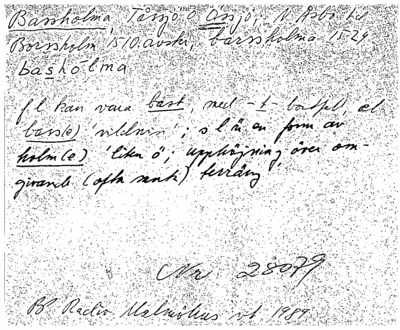 Bassholma, Tåssjö o Össjö, N Åsbo hd
Borssholm 1510 avskr, barssholma 1524
bashólma
fl kan vara bast, med -t- bortfall, el
bars(e) 'vildsvin'; sl är en form av
holm(e) 'liten ö; upphöjning över om-
givande (ofta sank) terräng'
Nr 28079
Radio Malmöhus vt 1989